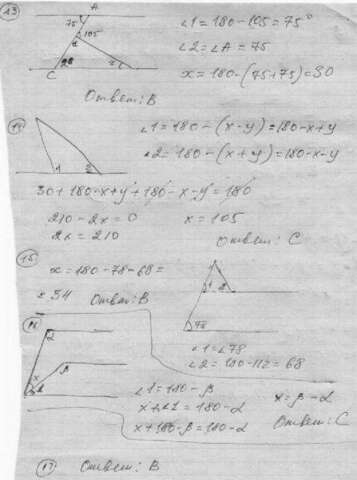 13
A
75
105
2
C
28
∠1 = 180 - 105 = 75°
∠2 = ∠A = 75
x = 180 - (75+75) = 30
Ответ: B
14
1
2
∠1 = 180 - (x - y) = 180 - x + y
∠2 = 180 - (x + y) = 180 - x - y
30 + 180 - x + y + 180 - x - y = 180
210 - 2x = 0
x = 105
2x = 210
Ответ: C
15
x = 180 - 78 - 68 =
= 34
Ответ: B
1
2
78
∠1 = ∠78
∠2 = 180 - 112 = 68
16
α
β
x
∠1 = 180 - β
x + ∠1 = 180 - α
x = β - α
x + 180 - β = 180 - α
Ответ: C
17
Ответ: B